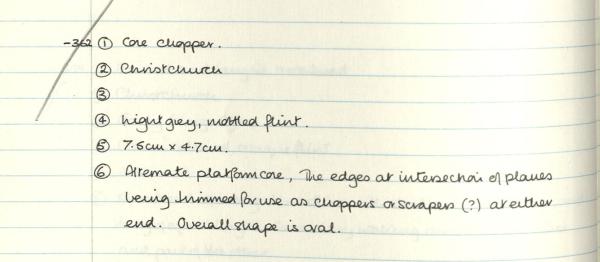 -362 ① Core chopper.
② Christchurch
③
④ Light grey, mottled flint.
⑤ 7.5cm x 4.7cm.
⑥ Alternate platform core, The edges at intersection of planes
being trimmed for use as choppers or scrapers (?) at either
end. Overall shape is oval.